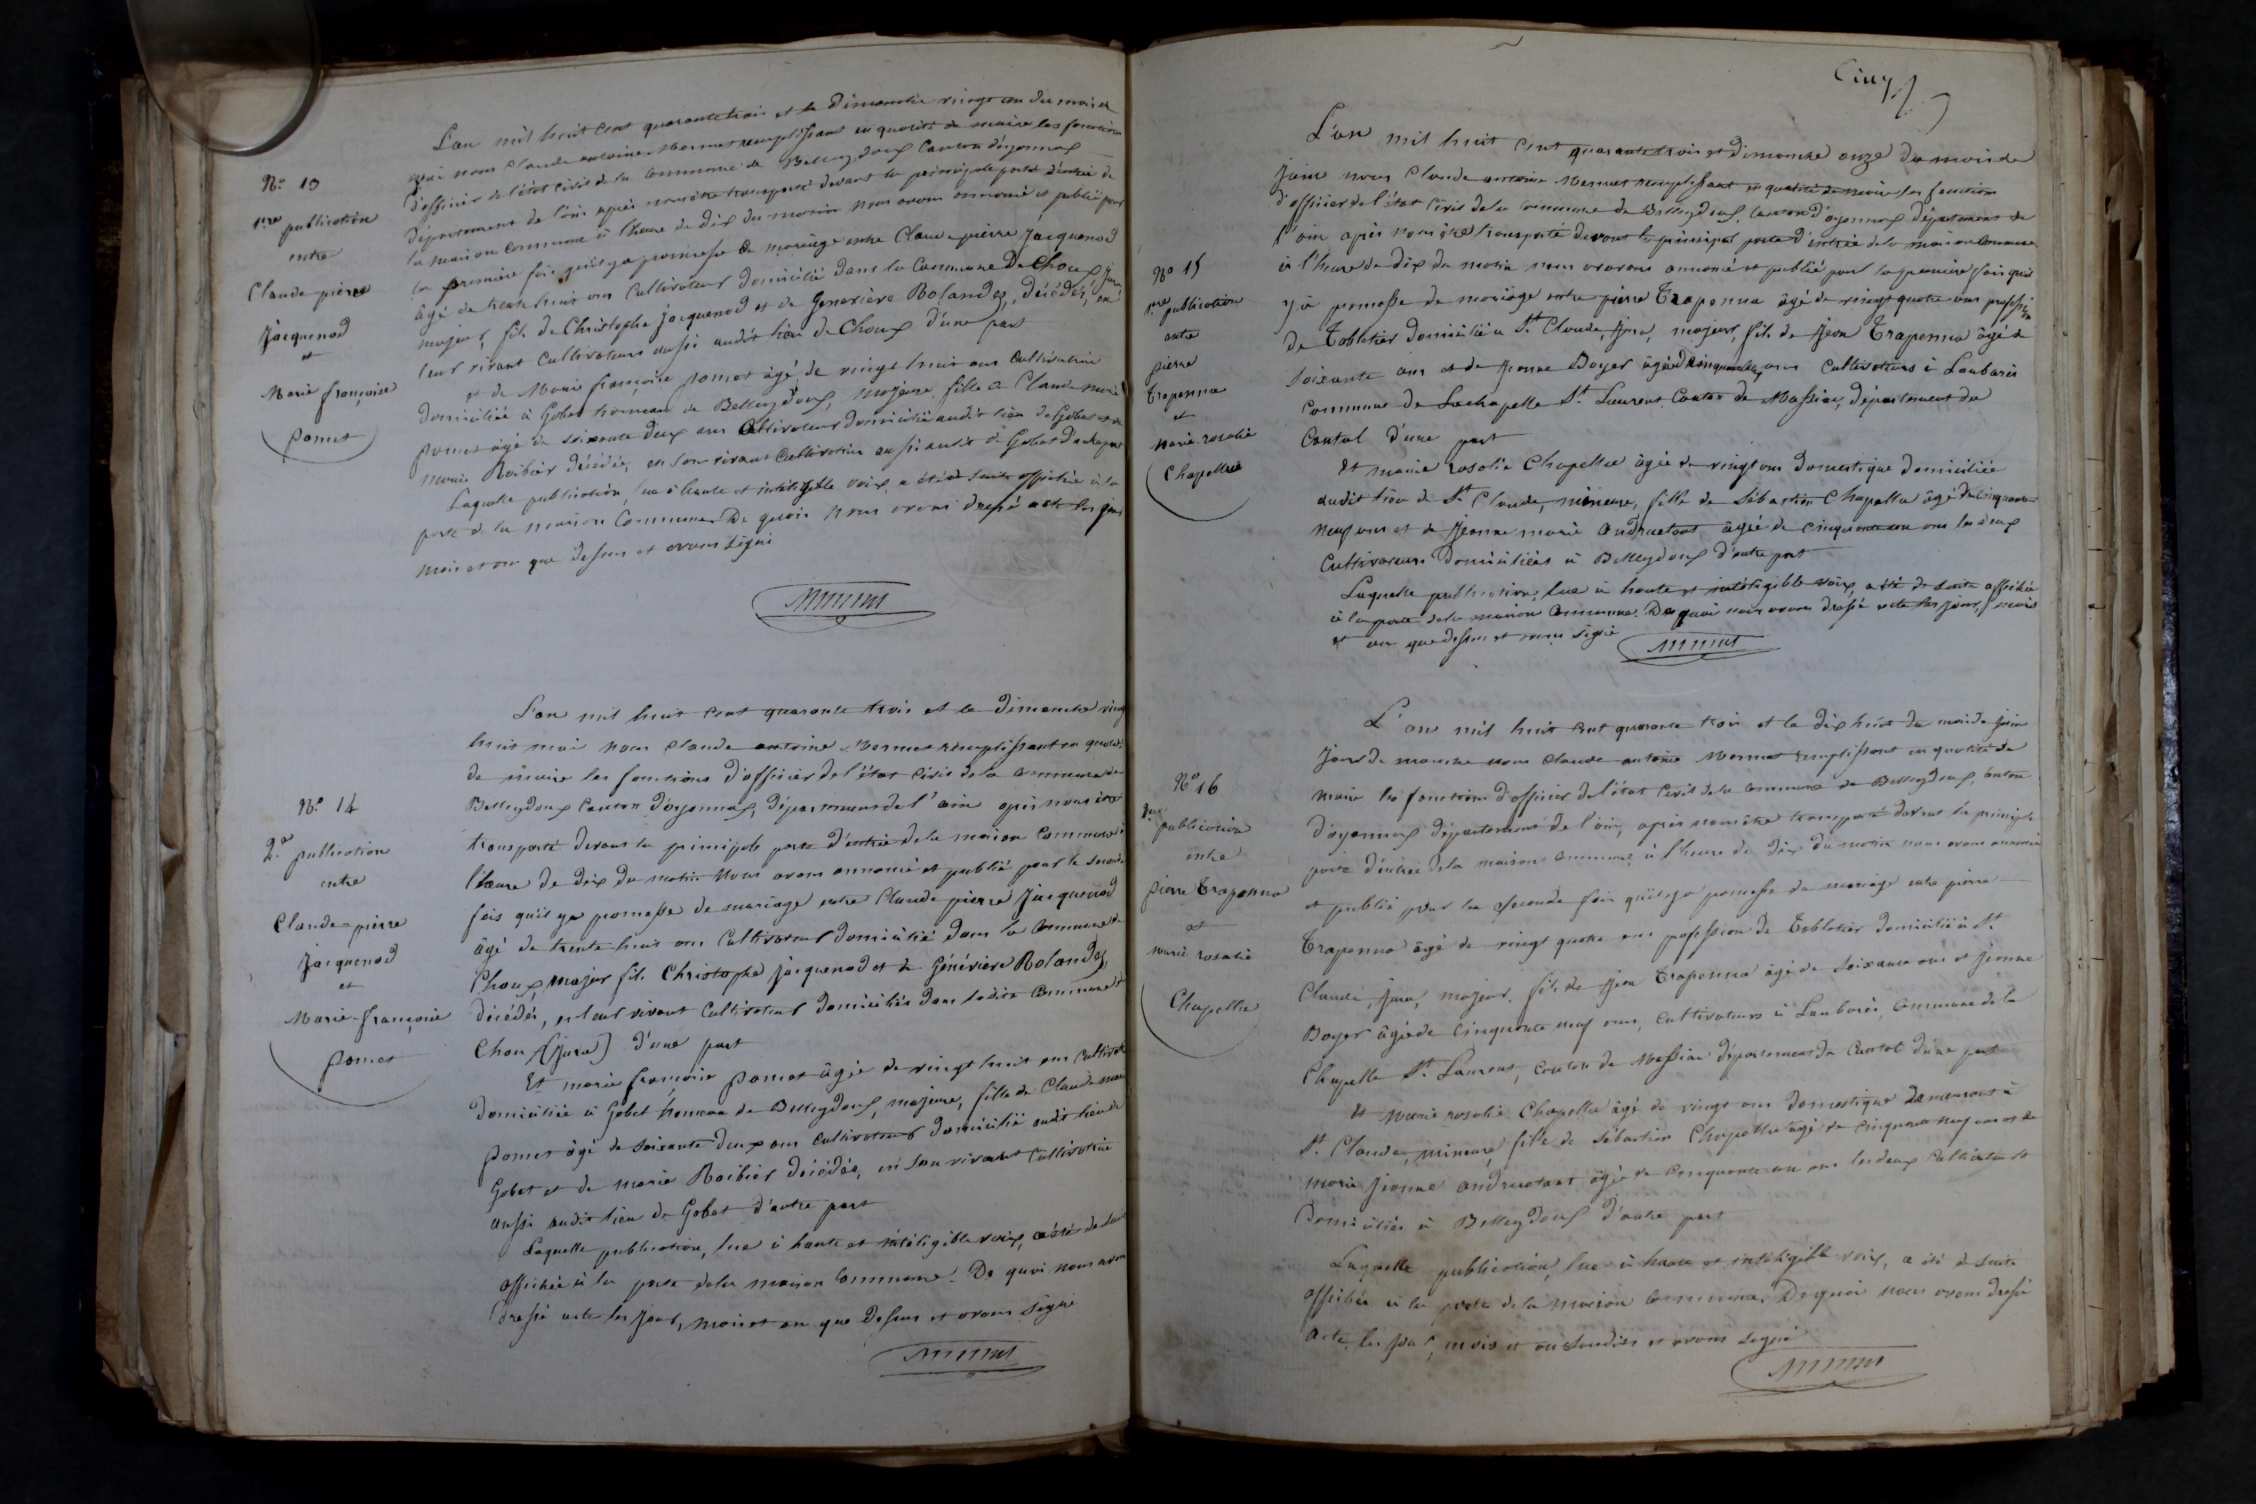 N.o 13
1.re publication
entre
Claude pierre
Jacquenod
et
Marie françoise
Pomet
L'an mil huit cent quarante trois et le dimanche vingt un du mois de
mai nous Claude antoine Mermet remplissant en qualité de maire les fonctions
d'officier de l'état civil de la commune de Belleydoux canton d'oyonnax
département de l'ain après nous être transporté devant la principale porte d'entrée de
la maison commune à l'heure de dix du matin nous avons annoncé et publié pour
la première fois qu'il y a promesse de mariage entre Claude pierre Jacquenod
âgé de trente huit ans Cultivateur domicilié dans la Commune de Choux Jura
majeur, fils de Christophe Jacquenod et de Geneviève Rolandez, décédés, en
leur vivant Cultivateurs aussi audit lieu de Choux d'une part
et de Marie françoise pomet âgé de vingt huit ans Cultivatrice
domiciliée à Gobet hameau de Belleydoux, majeure, fille de Claude marie
pomet âgé de soixante deux ans Cultivateur domicilié audit lieu de Gobet et de
marie Roibier décédée, en son vivant Cultivatrice aussi audit de Gobet d'autre part
Laquelle publication, lue à haute et intéligible voix, a été de suite affichée à la
porte de la maison Commune De quoi nous avons dressé acte les jour
mois et an que dessus et avons signé
Mermet
N.o 14
2.e publication
entre
Claude-pierre
Jacquenod
et
Marie-françoise
Pomet
L'an mil huit cent quarante trois et le dimanche vingt
huit mai nous Claude antoine Mermet remplissant en qualité
de maire les fonctions d'officier de l'état civil de la commune de
Belleydoux Canton d'oyonnax, département de l'ain après nous être
transporté devant la principale porte d'entrée de la maison Commune à
l'heure de dix du matin Nous avons annoncé et publié pour la seconde
fois qu'il y a promesse de mariage entre Claude pierre Jacquenod
âgé de trente huit ans Cultivateur domicilié dans la Commune de
Choux, majeur fils Christophe Jacquenod et de Généviève Rolandez,
décédés, en leur vivant Cultivateurs domiciliés dans ladite Commune de
Choux (Jura) d'une part
Et marie françoise Pomet âgée de vingt huit ans Cultivatrice
domiciliée à Gobet hameau de Belleydoux, majeure, fille de Claude marie
Pomet âgé de soixante deux ans Cultivateur domicilié audit lieu de
Gobet et de marie Roibier décédée, en son vivant Cultivatrice
aussi audit lieu de Gobet d'autre part
Laquelle publication, lue à haute et intéligible voix, a été de suite
affichée à la porte de la maison Commune. De quoi nous avons
dressé acte les jour, mois et an que dessus et avons signé
Mermet
Cinq
N.o 15
1.re publication
entre
pierre
Traponna
et
marie rosalie
Chapellu
L'an mil huit cent quarante trois et dimanche onze du mois de
juin nous Claude antoine Mermet remplissant en qualité de maire les fonctions
d'officier de l'état civil de la commune de Belleydoux, canton d'oyonnax département de
l'ain après nous être transporté devant la principal porte d'entrée de la maison Commune
à l'heure de dix du matin nous avons annoncé et publié pour la première fois qu'il
y a promesse de mariage entre pierre Traponna âgé de vingt quatre ans profession
de Tobletier domicilié à St Claude, Jura, majeur, fils de Jean Traponna âgé de
soixante ans et de Jeanne Boyer âgée de cinquante ans Cultivateurs à Loubarès
Commune de Lachapelle St Laurent Canton de Massiac, département du
Cantal d'une part
Et marie rosalie Chapellu âgée de vingt ans domestique domiciliée
audit lieu de St Claude, mineure, fille de Sébastien Chapellu âgé de cinquante
neuf ans et de Jeanne marie andruetant âgée de cinquante un ans les deux
Cultivateurs domiciliés à Belleydoux d'autre part
Laquelle publication, lue à haute et intéligible voix, a été de suite affichée
à la porte de la maison Commune. De quoi nous avons dressé acte les jour, mois
et an que dessus et avons signé
Mermet
N.o 16
publication
entre
Pierre Traponna
et
marie rosalie
Chapellu
L'an mil huit cent quarante trois et le dix huit du mois de juin
jour dimanche nous Claude antoine Mermet remplissant en qualité de
maire les fonctions d'officier de l'état civil de la commune de Belleydoux, canton
d'oyonnax département de l'ain, après nous être transporté devant la principale
porte d'entrée de la maison commune à l'heure de dix du matin nous avons annoncé
et publié pour la seconde fois qu'il y a promesse de mariage entre pierre
Traponna âgé de vingt quatre ans profession de Tobletier domicilié à St
Claude, Jura, majeur, fils de Jean Traponna âgé de soixante ans et Jeanne
Boyer âgée de cinquante neuf ans, Cultivateurs à Loubarès, Commune de la
Chapelle St Laurent, canton de Massiac département du Cantal d'une part
Et marie rosalie Chapellu âgé de vingt ans domestique demeurant à
St Claude, mineure, fille de Sébastien Chapellu âgé de cinquante neuf ans et de
marie Jeanne andruetant âgée de cinquante un ans les deux Cultivateurs
Domiciliés à Belleydoux d'autre part
Laquelle publication, lue à haute et intéligible voix, a été de suite
affichée à la porte de la maison commune. De quoi nous avons dressé
acte les jour, mois et an susdits et avons signé
Mermet